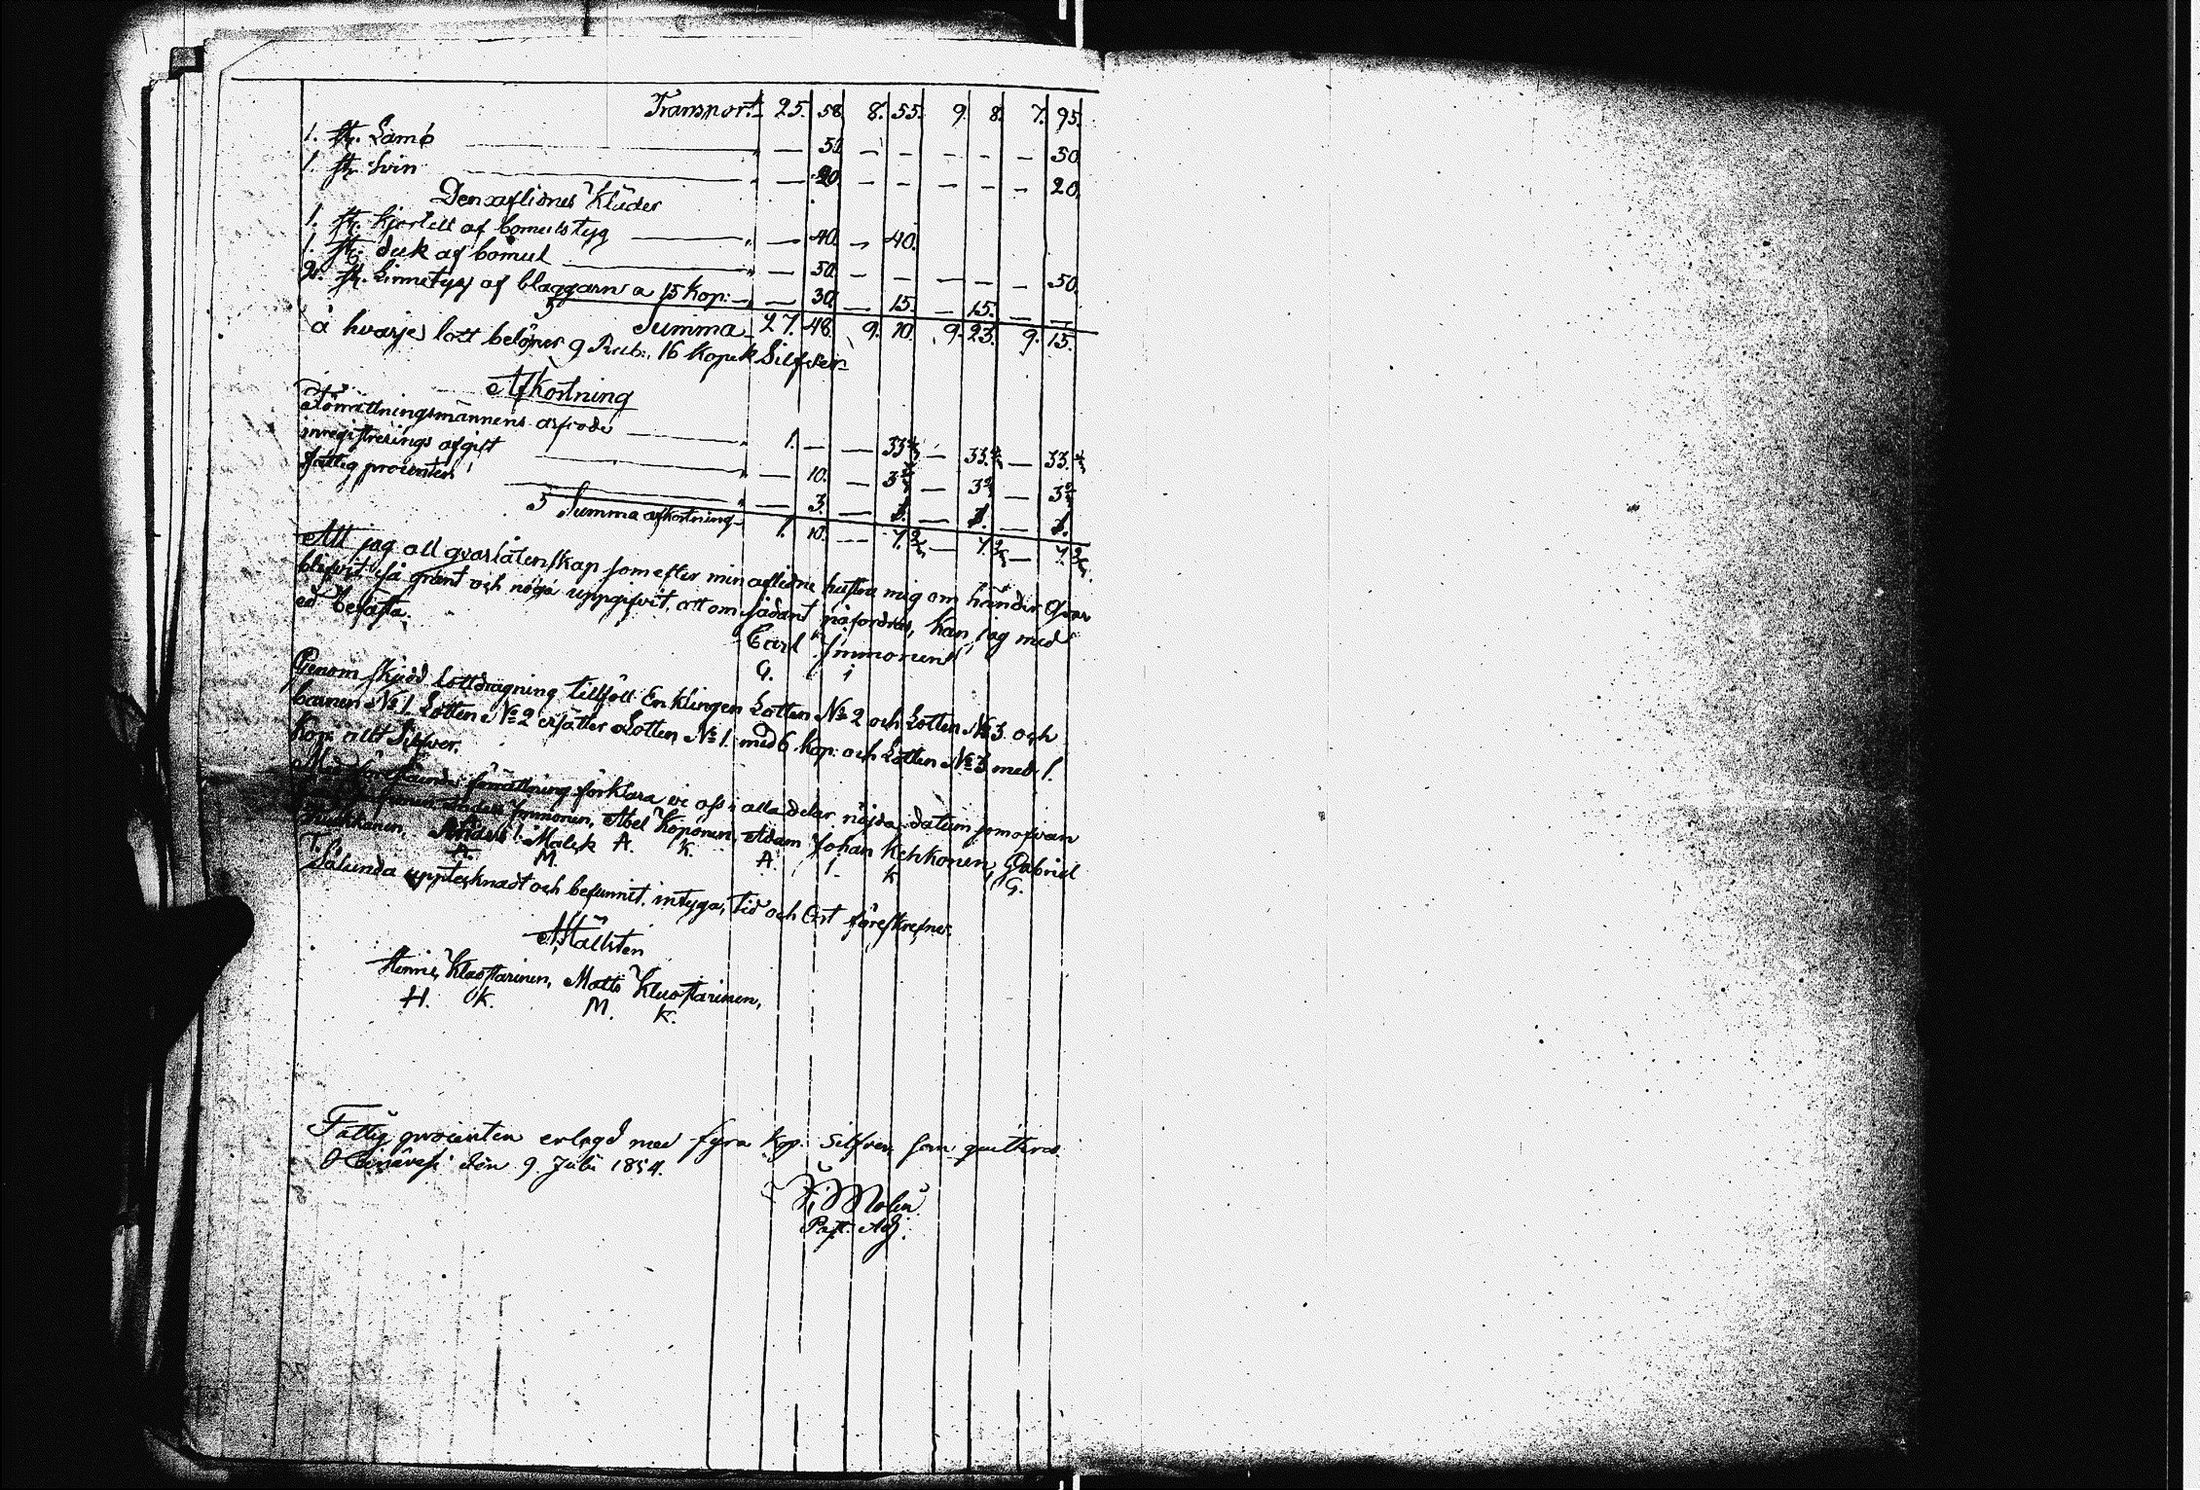 Transport 25. 58 8. 55. 9. 8. 7. 95.
1. st. Lamb — 50. — — — — — 50.
1. st. Svin — 20. — — — — — 20.
Den aflidnes Kläder
1. st. kjortell af bomulstyg — 40. — 40.
1. st. duk af bomul — 50. — — — — — 50.
2. st. Linnetyg af blaggarn a 15 kop: — 30. — 15. — 15. — —
Summa 27. 48. 9. 10. 9. 23. 9. 15.
å hvarje lott belöper 9 Rub: 16 Kopek Silfver
Afkortning
Förrättningsmännens arfvode 1. — — 33 — 33. — 33.
inregistrerings afgift — 10. — 3 — 3 — 3
Fattig procenten — 3. — 1. — 1. — 1.
Summa afkortning 1. 10. — 7. — 7. — 7.
Att jag all qvarlåtenskap som efter min aflidne hustru mig om händer
blifvit så grant och nöga uppgifvit, att om sådant påfordras, kan jag med
ed befästa.
Carl Immonen
C. I
Genom skjedd lottdragning tillföll Enklingen Lotten № 2 och Lotten № 3 och
barnen № 1. Lotten № 2 ersätter Lotten № 1. med 6 kop: och Lotten № 3 med 1.
kop: allt Silfver.
förrättning förklara vi oss i alla delar nöjda, datum som ofvan
Immonen, Abel Koponen, Adam Johan Kehkonen, Gabriel
Anders Malek A. K. A. I. K G.
A. M.
Sålunda upptecknadt och befunnit, intyga, tid och Ort föreskrefne.
Hällsten
Klaostarinen, Matts Klaostarinen,
H. K. M. K.
Fattig procenten erlagd med fyra kop. silfver som quitteras
den 9. Juli 1854.
Molin
Past. Adj.